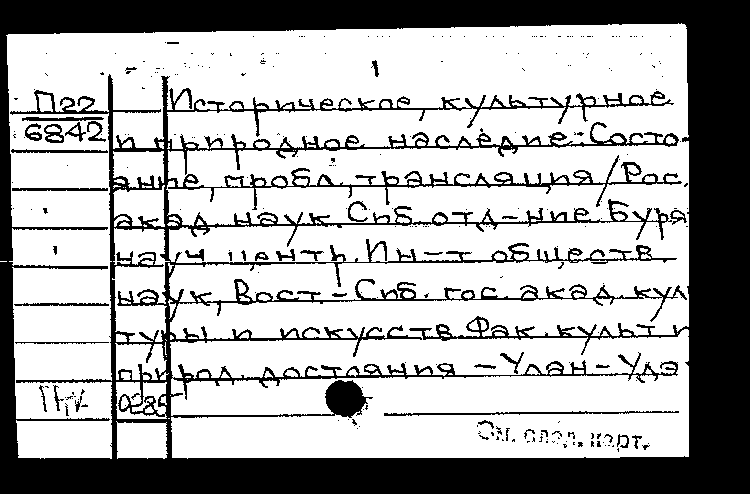 1
П22 Историческое, культурное
6842 и природное наследие: Состо-
яние, пробл., трансляция / Рос.
акад наук. Сиб. отд-ние. Буря
науч центр. Ин-т обществ.
наук, Вост.-Сиб. гос. акад. куль
туры и искусств. Фак. культ и
природ. достояния - Улан-Удэ
0285
См. след. карт.